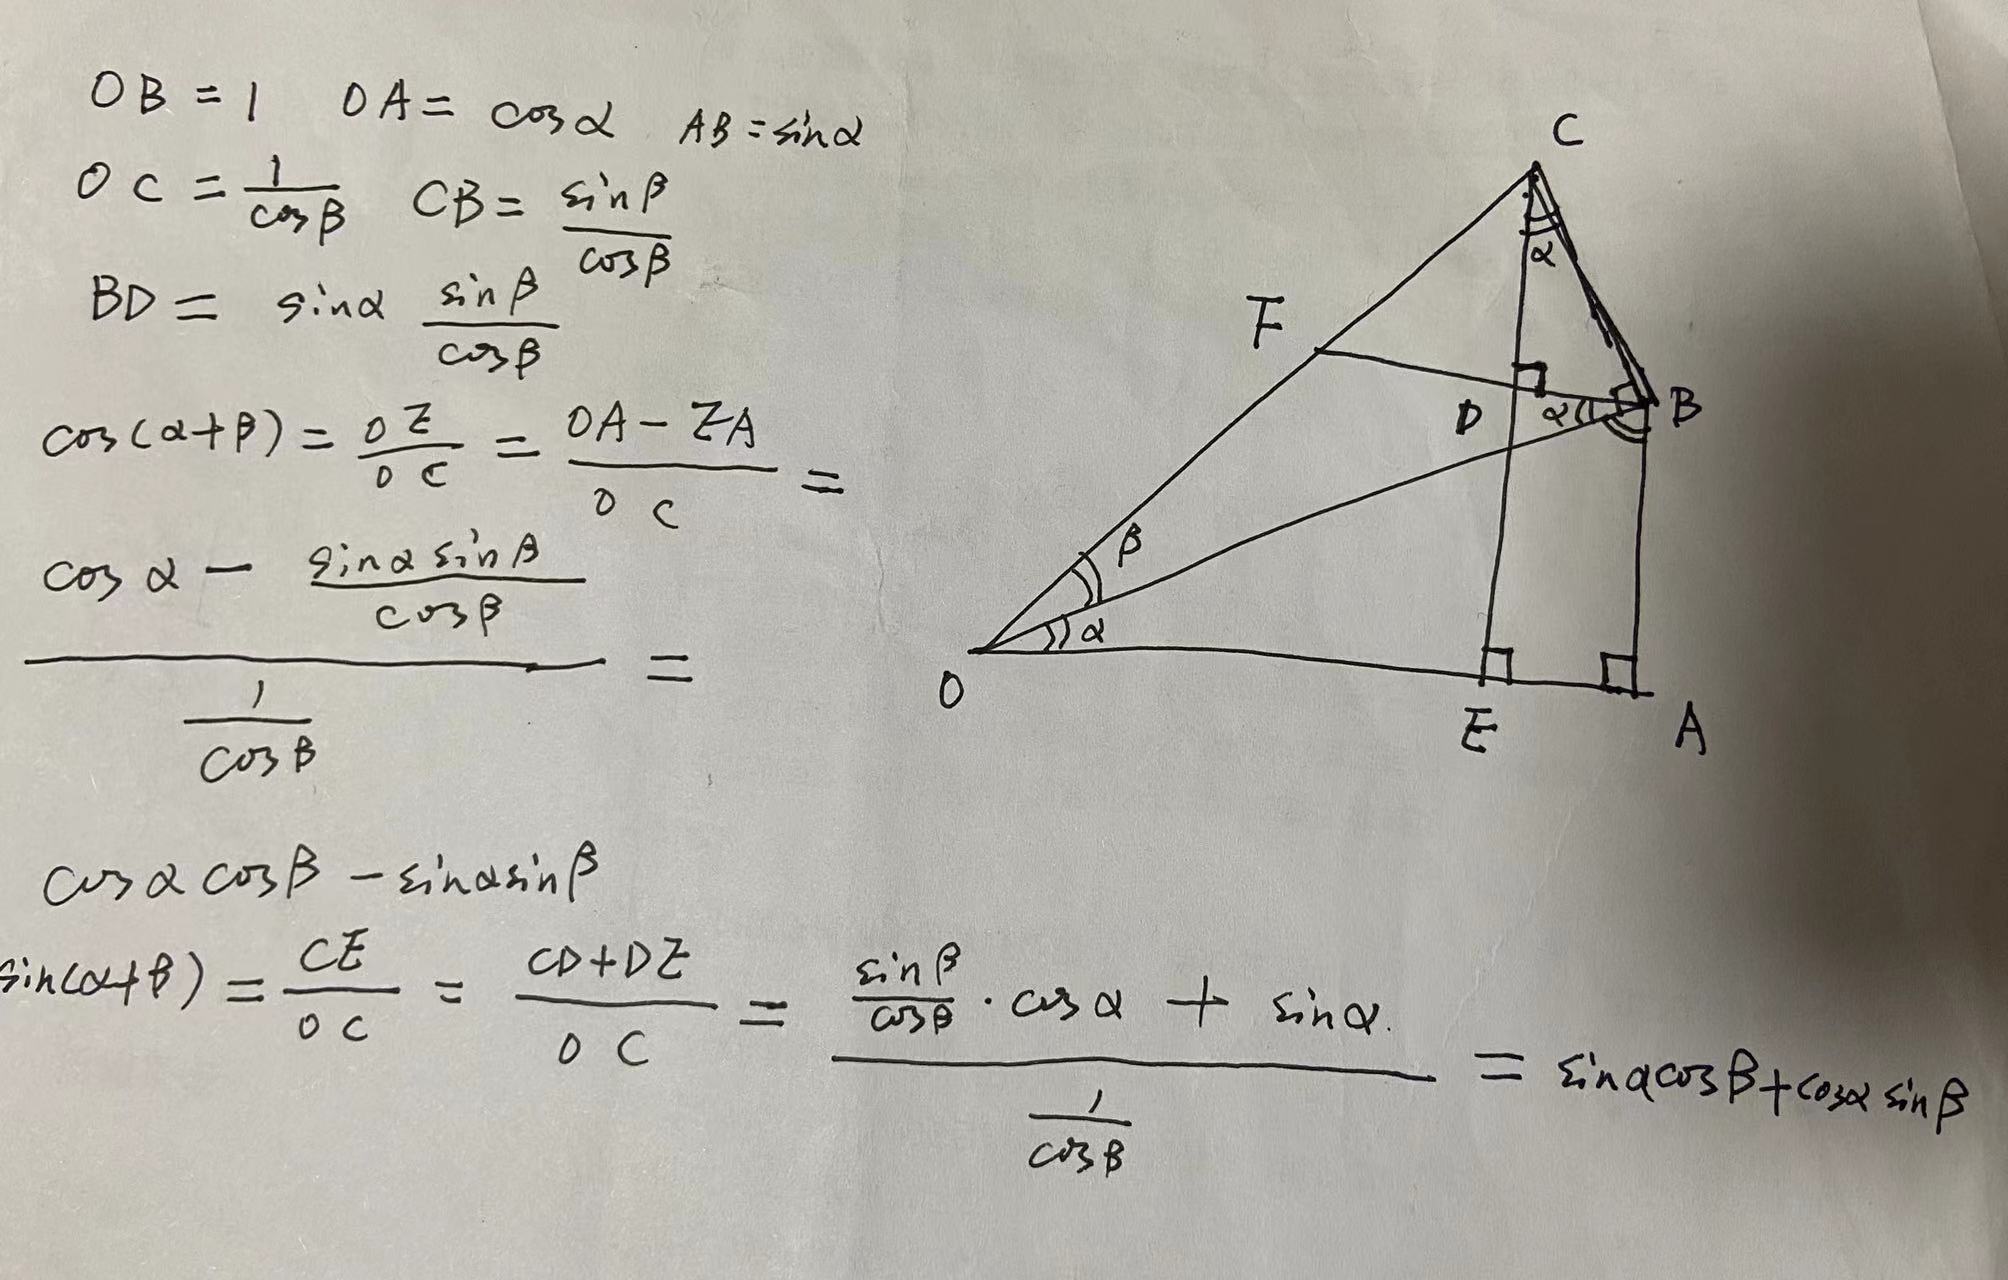 OB = 1 OA = cosα AB = sinα
OC = 1/cosβ CB = sinβ/cosβ
BD = sinα sinβ/cosβ
cos(α+β) = OE/OC = (OA - EA)/OC =
(cosα - sinα sinβ/cosβ)/(1/cosβ) =
cosα cosβ - sinα sinβ
sin(α+β) = CE/OC = (CD+DE)/OC = (sinβ/cosβ · cosα + sinα.)/(1/cosβ) = sinα cosβ + cosα sinβ
C
α
F
D α B
β
α
O
E A